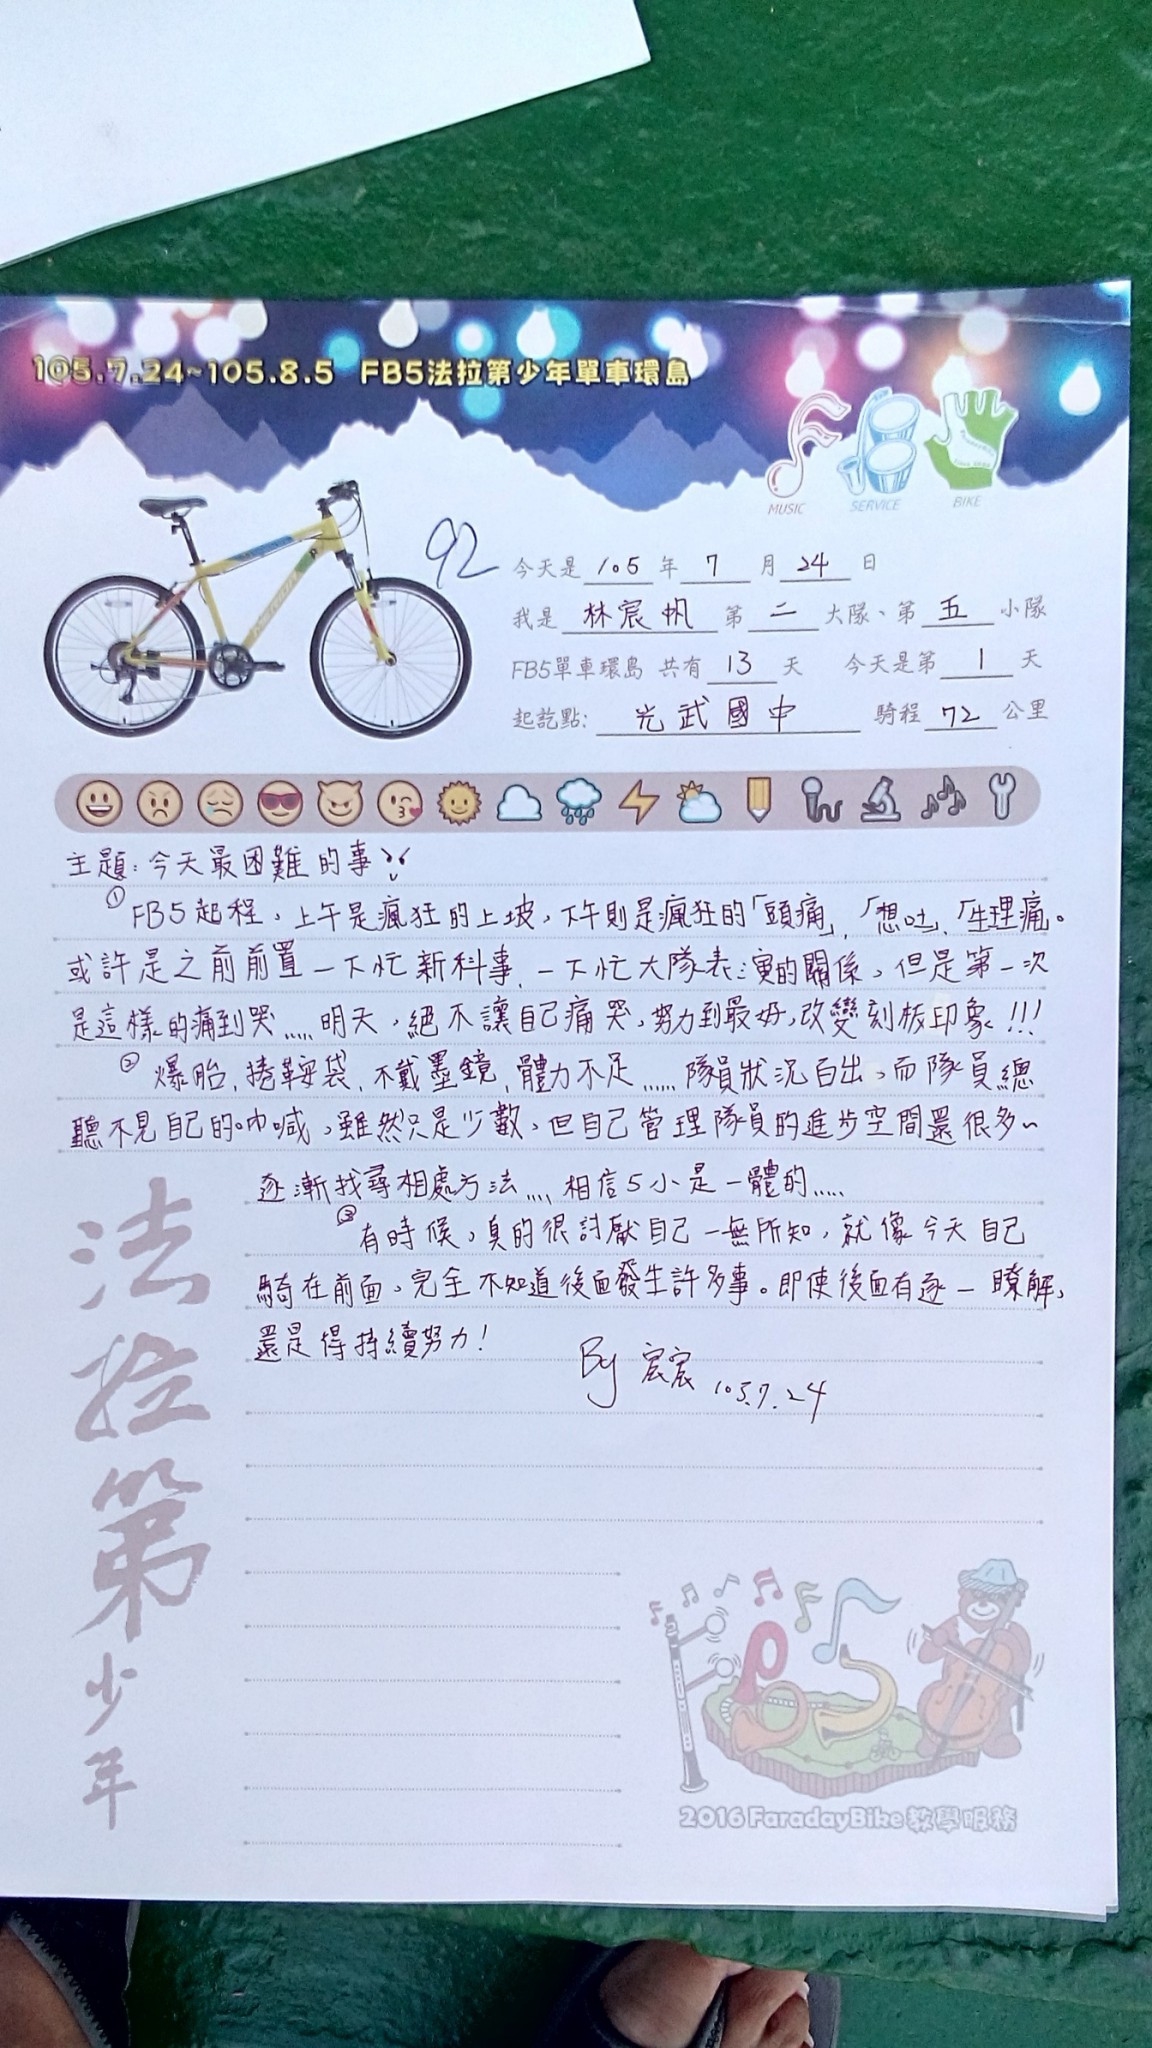 105.7.24~105.8.5 FB5法拉第少年單車環島
MUSIC
SERVICE
BIKE
92
今天是 105 年 7 月 24 日
我是 林宸帆 第 二 大隊、第 五 小隊
FB5單車環島 共有 13 天 今天是第 1 天
起訖點: 光武國中 騎程 72 公里
主題:今天最困難的事
① FB5起程,上午是瘋狂的上坡,下午則是瘋狂的「頭痛」,「想吐」,「生理痛」。
或許是之前前置一下忙新科事,一下忙大隊表演的關係,但是第一次
是這樣的痛到哭.....明天,絕不讓自己痛哭,努力到最好,改變刻板印象!!!
② 爆胎,捲鞍袋,不戴墨鏡,體力不足.....隊員狀況百出,而隊員總
聽不見自己的吶喊,雖然只是少數,但自己管理隊員的進步空間還很多~
逐漸找尋相處方法....相信5小是一體的.....
③ 有時候,真的很討厭自己一無所知,就像今天自己
騎在前面,完全不知道後面發生許多事。即使後面有逐一瞭解,
還是得持續努力!
By 宸宸 105.7.24
法拉第少年
2016 FaradayBike 教學服務